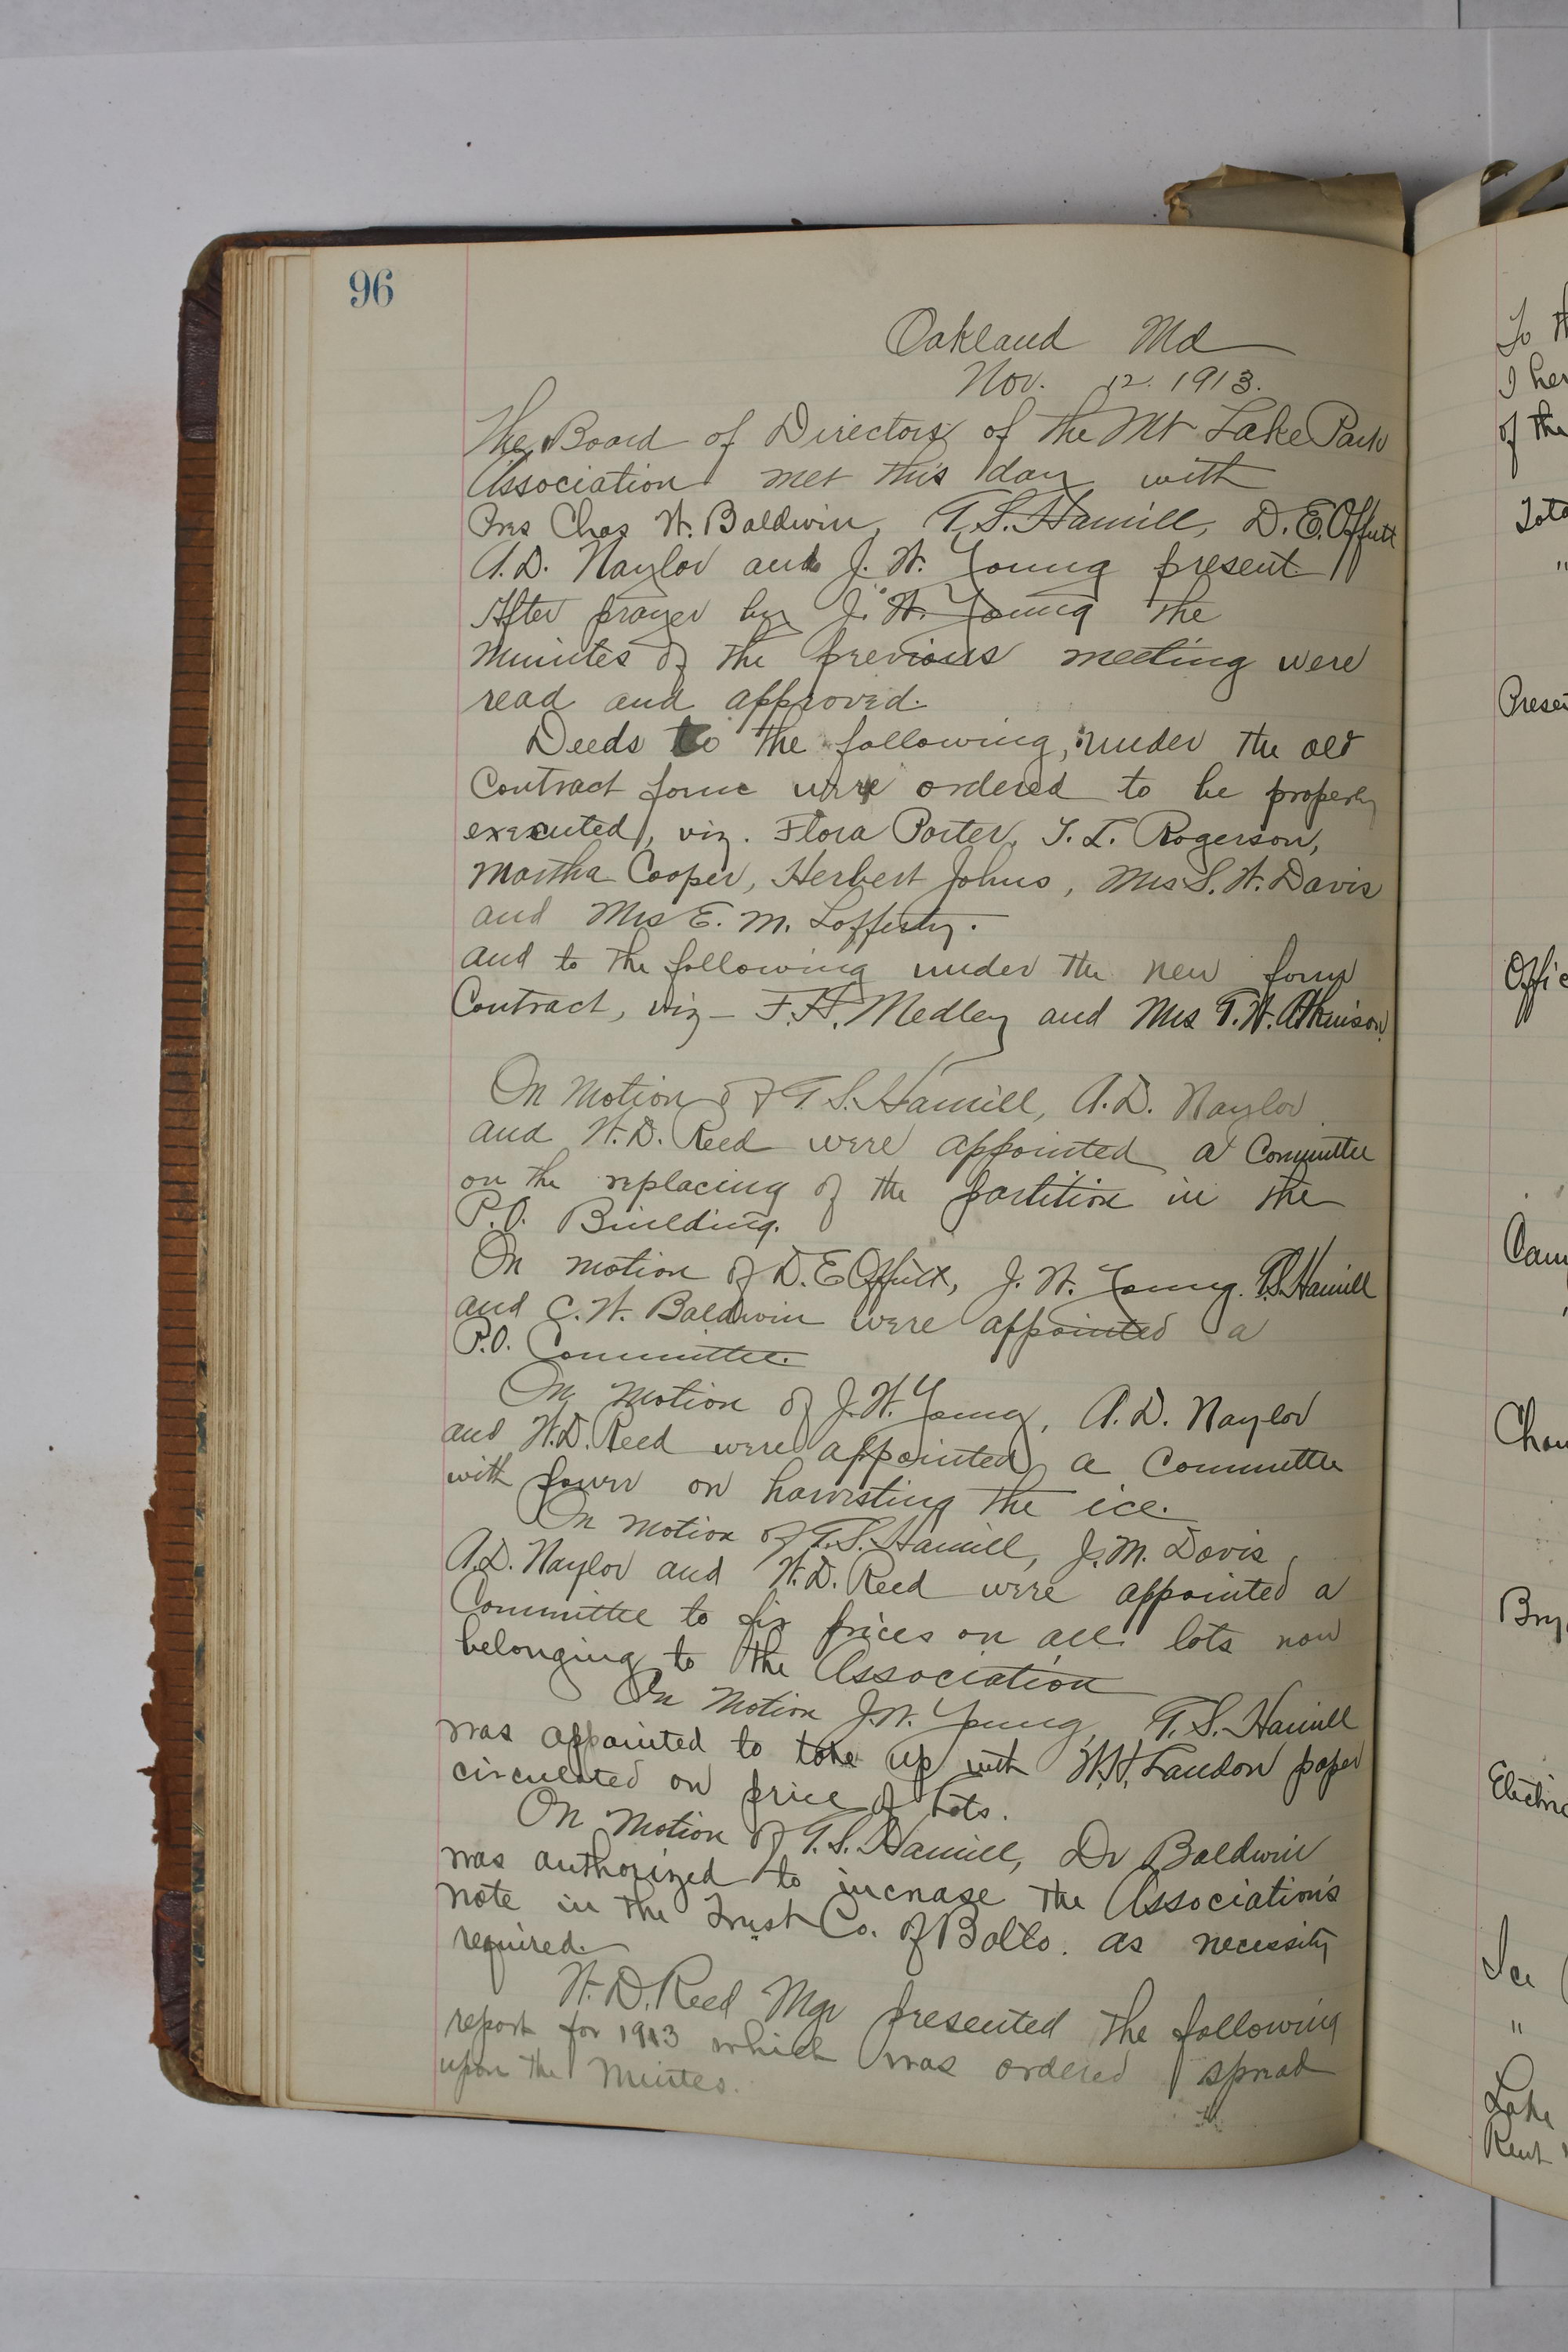 96
Oakland Md
Nov. 12. 1913.
The Board of Directors of the Mt Lake Park
Association met this day with
Pres Chas W. Baldwin, T. S. Hamill, D. E. Offutt
A. D. Naylor and J. W. Young present
After prayer by J. W. Young the
minutes of the previous meeting were
read and approved.
Deeds to the following, under the old
Contract form were ordered to be properly
executed, viz. Flora Porter, T. L. Rogerson,
Martha Cooper, Herbert Johns, Mrs S. W. Davis
and Mrs E. M. Lofferty.
and to the following under the new form
Contract, viz - F. H. Medley and Mrs T. W. Atkinson.
On Motion of T. S. Hamill, A. D. Naylor
and W. D. Reed were appointed a Committee
on the replacing of the partition in the
P.O. Building.
On motion of D. E Offutt, J. W. Young. T. S. Hamill
and C. W. Baldwin were appointed a
P.O. Committee.
On motion of J. W. Young, A. D. Naylor
and W. D. Reed were appointed a Committee
with power on harvesting the ice.
On motion of T. S. Hamill, J. M. Davis,
A. D. Naylor and W. D. Reed were appointed a
Committee to fix prices on all lots now
belonging to the Association
On Motion J. W. Young, T. S. Hamill
was appointed to take up with W. H. Landon paper
circulated on price of Lots.
On Motion of T. S. Hamill, Dr Baldwin
was authorized to increase the Association's
note in the Trust Co. of Balto. as necessity
required.
W. D. Reed Mgr presented the following
report for 1913 which was ordered spread
upon the Minutes.
To
I her
of the
Tota
"
Presen
Offic
Cam
Chau
Bry
Electric
Ice
"
Lake
Rent